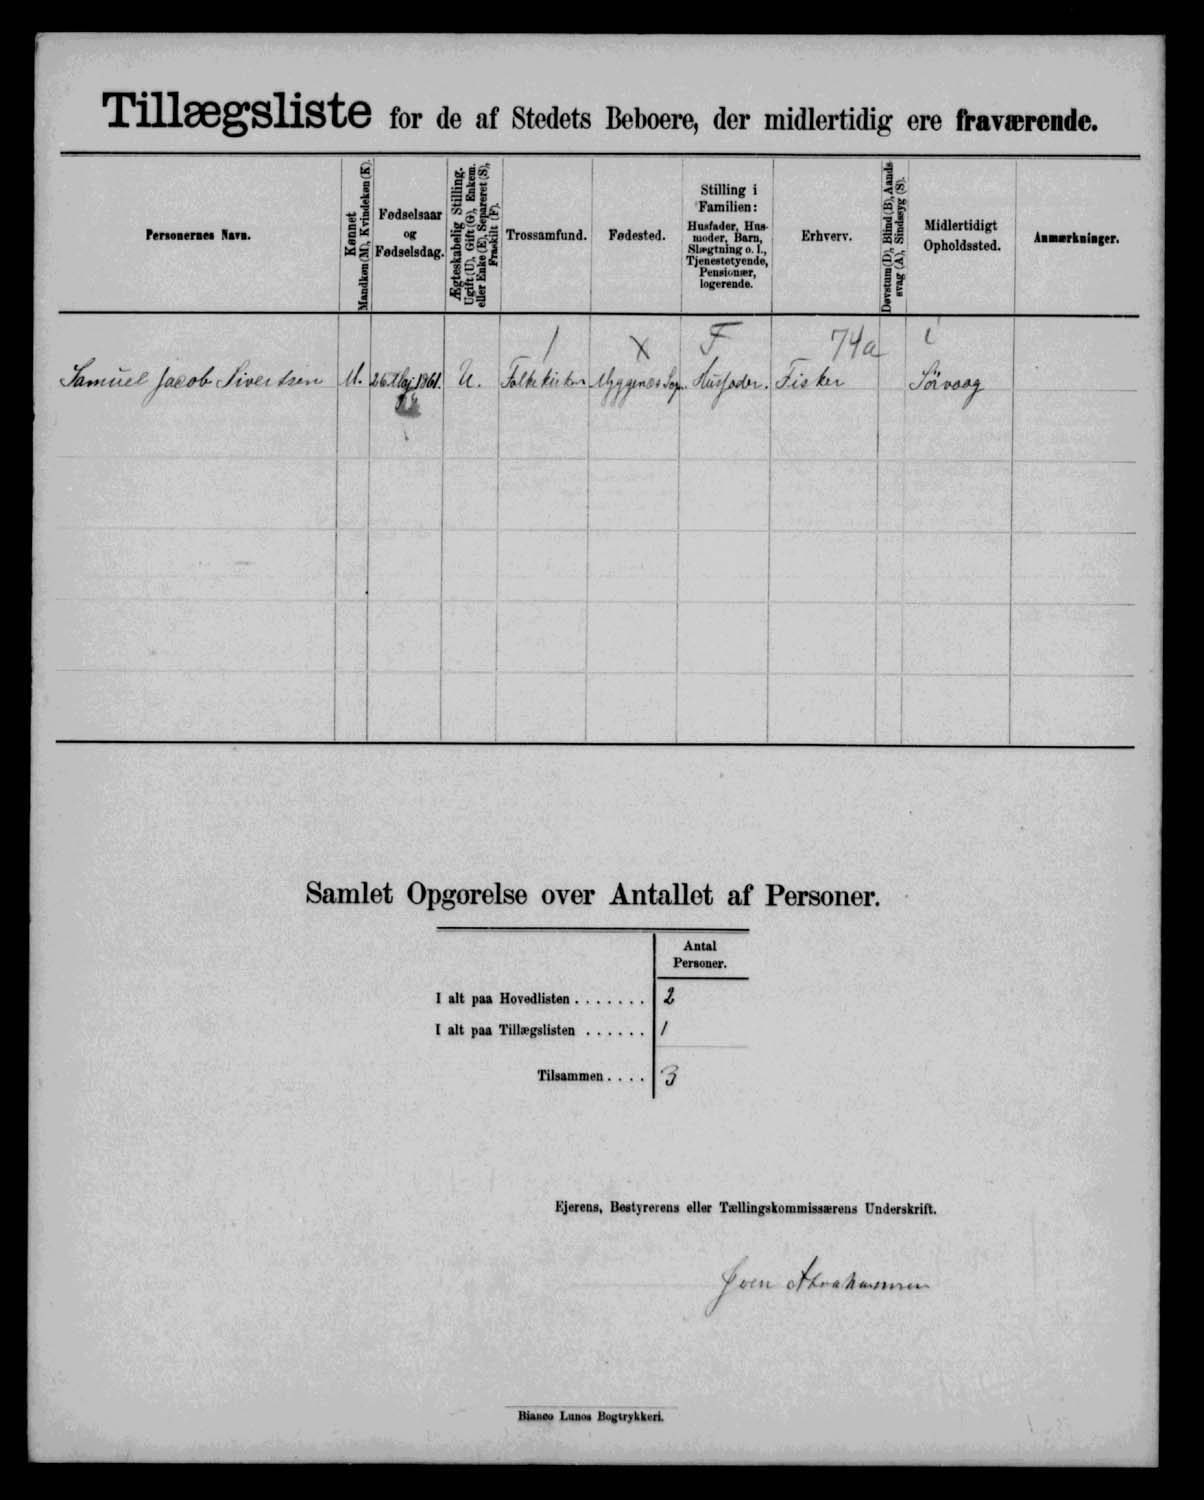 Tillægsliste for de af Stedets Beboere, der midlertidig ere fraværende.
Personernes Navn.
Kønnet
Mandkøn (M), Kvindekøn (K).
Fødselsaar
og
Fødselsdag.
Ægteskabelig Stilling.
Ugift (U), Gift (G), Enkem.
eller Enke (E), Separeret (S),
Fraskilt (F).
Trossamfund.
Fødested.
Stilling i
Familien:
Husfader, Hus-
moder, Barn,
Slægtning o. l.,
Tjenestetyende,
Pensionær,
logerende.
Erhverv.
Døvstum (D), Blind (B), Aands-
svag (A), Sindssyg (S).
Midlertidigt
Opholdssted.
Anmærkninger.
1 x F 74a i
Samuel Jacob Sivertsen M. 26 Maj 1861. U. Folkekirken Myggenæs Sogn Husfader. Fisker Sörvaag
Samlet Opgørelse over Antallet af Personer.
Antal
Personer.
I alt paa Hovedlisten . . . . . . . 2
I alt paa Tillægslisten . . . . . . 1
Tilsammen . . . . 3
Ejerens, Bestyrerens eller Tællingskommissærens Underskrift.
Joen Abrahamsen
Bianco Lunos Bogtrykkeri.